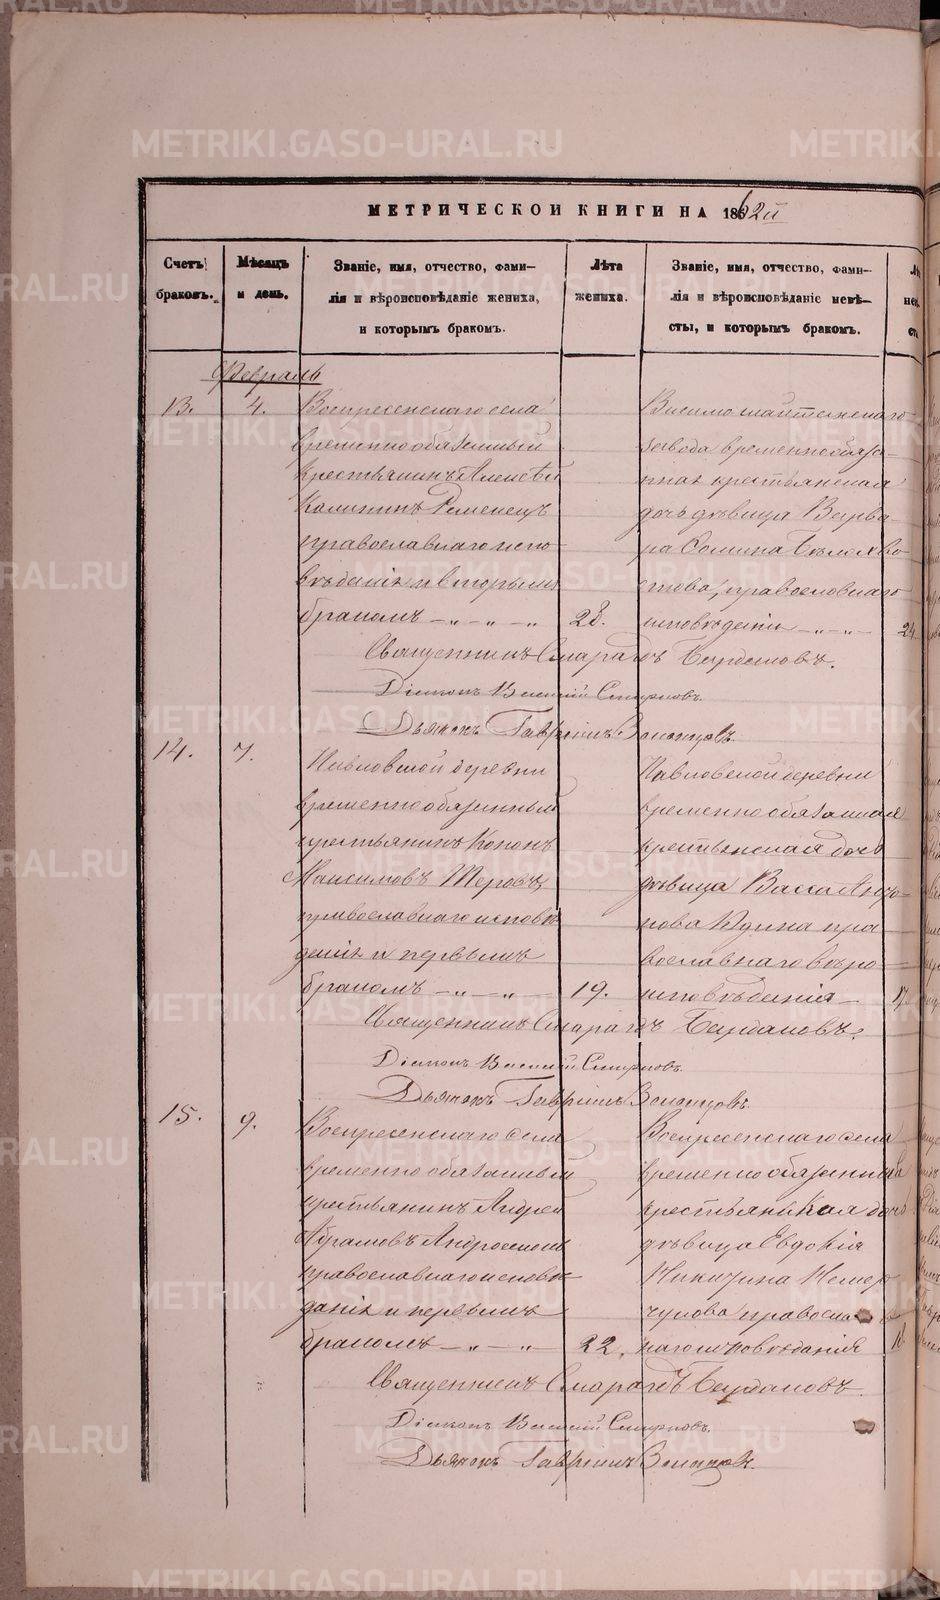 METRIKI.GASO-URAL.RU
МЕТРИЧЕСКОЙ КНИГИ НА 1862й
Счетъ браковъ.
Мѣсяцъ и день.
Званіе, имя, отчество, фами-
лія и вѣроисповѣданіе жениха,
и которымъ бракомъ.
Лѣта жениха.
Званіе, имя, отчество, фами-
лія и вѣроисповѣданіе невѣ-
сты, и которымъ бракомъ.
Февраль
13.
4.
Воскресенскаго села
временно обязанный
крестьянинъ Алексѣй
Калининъ Ременецъ
православнаго испо-
вѣданія и вторымъ
бракомъ — „ — „ — „
23.
Висимо шайтанскаго
завода временнообяза-
нная крестьянская
дочь дѣвица Варва
ра Сомина Бѣлохво-
стова, православнаго
исповѣданія — „ — „
24
Священникъ Смарагдъ Бурдаковъ.
Діаконъ Василій Смирновъ.
Дьячокъ Гавріилъ
14.
7.
Павловской деревни
временно обязанный
крестьянинъ Кононъ
Максимовъ Теровъ
православнаго исповѣ
данія и первымъ
бракомъ — „ — „
19.
Павловской деревни
временно обязанная
крестьянская дочь
дѣвица Васса Анто-
нова Юдина пра
вославнаго вѣро
исповѣданія —
17
Священникъ Смарагдъ Бурдаковъ.
Діаконъ Василій Смирновъ.
Дьячокъ Гавріилъ
15.
9.
Воскресенскаго села
временно обязанный
крестьянинъ Андрей
Абрамовъ
православнаго исповѣ
данія и первымъ
бракомъ — „ — „
22.
Воскресенскаго села
временно обязаннаго
крестьянская дочь
дѣвица Евдокія
Никитина Немер
чукова православ
наго исповѣданія
Священникъ Смарагдъ Бурдаковъ.
Діаконъ Василій Смирновъ.
Дьячокъ Гавріилъ